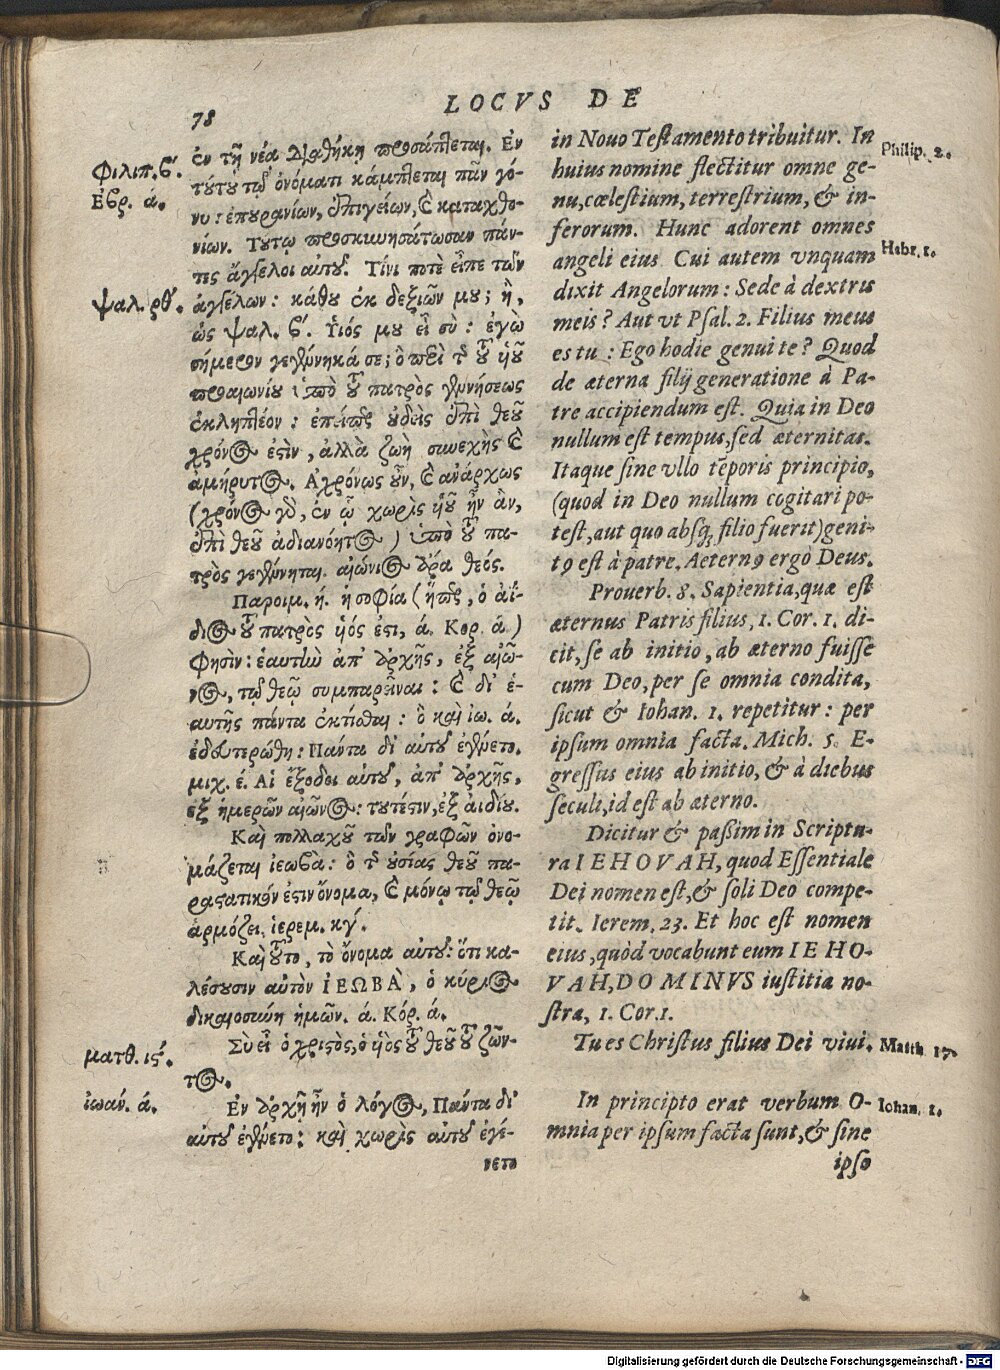 78
LOCVS DE
Φιλιπ. ϛ'.
Εβρ. ά.
ψαλ. ρθ'.
ματθ. ιϛ'.
ἰωάν. ά.
ἐν τῇ νέᾳ Διαθήκῃ προσάπτεται. Εν
τούτου τῷ ὀνόματι κάμπτεται πᾶν γό-
νυ: ἐπουρανίων, ἐπιγείων, καὶ καταχθο-
νίων. Τούτῳ προσκυνησάτωσαν πάν-
τες ἄγγελοι αὐτοῦ. Τίνι ποτὲ εἶπε τῶν
ἀγγέλων: κάθου ἐκ δεξιῶν μου; ἢ,
ὡς ψαλ. ϛ'. Υἱός μου εἶ σὺ: ἐγὼ
σήμερον γεγέννηκά σε; ὃ περὶ τῆς τοῦ υἱοῦ
προαιωνίου ὑπὸ τοῦ πατρὸς γεννήσεως
ἐκληπτέον: ἐπείπερ οὐδεὶς ἐπὶ θεοῦ
χρόνος ἐστὶν, ἀλλὰ ζωὴ συνεχὴς καὶ
ἀμήρυτος. Αχρόνως οὖν, καὶ ἀνάρχως
(χρόνος γὰρ, ἐν ᾧ χωρὶς υἱοῦ ἦν ἂν,
ἐπὶ θεοῦ ἀδιανόητος) ὑπὸ τοῦ πα-
τρὸς γεγέννηται. αἰώνιος ἄρα θεός.
Παροιμ. ή. ἡ σοφία (ἥπερ, ὁ ἀί-
διος τοῦ πατρὸς υἱός ἐστι, ά. Κορ. ά)
Φησὶν: ἑαυτὴν ἀπ' ἀρχῆς, ἐξ αἰῶ-
νος, τῷ θεῷ συμπαρεῖναι: καὶ δι' ἑ-
αυτῆς πάντα ἐκτίσθαι: ὃ καὶ ἰω. ά.
ἐδευτερώθη: Πάντα δι' αὐτοῦ ἐγένετο.
μιχ. έ. Αἱ ἔξοδοι αὐτοῦ, ἀπ' ἀρχῆς,
ἐξ ἡμερῶν αἰῶνος: τουτέστιν, ἐξ ἀιδίου.
Καὶ πολλαχοῦ τῶν γραφῶν ὀνο-
μάζεται ἰεωβα: ὃ τῆς οὐσίας θεοῦ πα-
ραστατικόν ἐστιν ὄνομα, καὶ μόνῳ τῷ θεῷ
ἁρμόζει. ἱερεμ. κγ'.
Καὶ τοῦτο, τὸ ὄνομα αὐτοῦ: ὅτι κα-
λέσουσιν αὐτὸν ΙΕΩΒΑ, ὁ κύριος
δικαιοσύνη ἡμῶν. ά. Κόρ. ά.
Σὺ εἶ ὁ χριστὸς, ὁ υἱὸς τοῦ θεοῦ τοῦ ζῶν-
τος.
Εν ἀρχῇ ἦν ὁ λόγος, Πάντα δι'
αὐτοῦ ἐγένετο: καὶ χωρὶς αὐτοῦ ἐγέ-
νετο
in Nouo Testamento tribuitur. In
huius nomine flectitur omne ge-
nu, cœlestium, terrestrium, & in-
ferorum. Hunc adorent omnes
angeli eius Cui autem vnquam
dixit Angelorum: Sede à dextris
meis? Aut vt Psal. 2. Filius meus
es tu: Ego hodie genui te? Quod
de æterna filij generatione à Pa-
tre accipiendum est. Quia in Deo
nullum est tempus, sed æternitas.
Itaque sine vllo tẽporis principio,
(quod in Deo nullum cogitari po-
test, aut quo absq; filio fuerit) geni-
t9 est à patre. Aetern9 ergò Deus.
Prouerb. 8. Sapientia, quæ est
æternus Patris filius, 1. Cor. 1. di-
cit, se ab initio, ab æterno fuisse
cum Deo, per se omnia condita,
sicut & Iohan. 1. repetitur: per
ipsum omnia facta. Mich. 5. E-
gressus eius ab initio, & à diebus
seculi, id est ab æterno.
Dicitur & paßim in Scriptu-
ra IEHOVAH, quod Essentiale
Dei nomen est, & soli Deo compe-
tit. Ierem. 23. Et hoc est nomen
eius, quòd vocabunt eum IEHO-
VAH, DOMINVS iustitia no-
stra, 1. Cor. 1.
Tu es Christus filius Dei viui.
In principio erat verbum O-
mnia per ipsum facta sunt, & sine
ipso
Philip. 2.
Hebr. 1.
Matth. 17.
Iohan. 1.
Digitalisierung gefördert durch die Deutsche Forschungsgemeinschaft - DFG